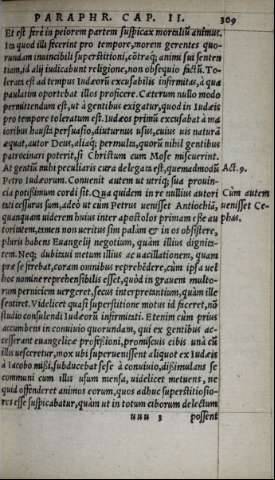 PARAPHR. CAP. II. 309
Et est ferè in peiorem partem suspicax mortaliũ animus.
Ita quod illi fecerint pro tempore, morem gerentes quo-
rundam inuincibili superstitioni, cõtraq́; animi sui senten
tiam, id alij iudicabunt religione, non obsequio factũ. To-
leranda est ad tempus Iudæorũ excusabilis infirmitas, à qua
paulatim oportebat illos proficere. Cæterum nullo modo
permittendum est, ut à gentibus exigatur, quod in Iudæis
pro tempore toleratum est. Iudæos primũ excusabat à ma
ioribus hausta persuasio, diuturnus usus, cuius uis naturã
æquat, autor Deus, aliaq́; permulta, quorũ nihil gentibus
patrocinari poterit, si Christum cum Mose miscuerint.
At gentiũ mihi peculiaris cura delegata est, quemadmodũ Act. 9.
Petro Iudæorum. Conuenit autem ut utriq; sua prouin-
cia potißimum cordi sit. Qua quidem in re nullius autori Cùm autem
tati cessurus sum, adeò ut cùm Petrus uenisset Antiochiã, uenisset Ce-
quanquam uiderem huius inter apostolos primam esse au phas.
toritatem, tamen non ueritus sim palàm & in os obsistere,
pluris habens Euangelij negotium, quàm illius dignita-
tem. Neq; dubitaui metum illius ac uacillationem, quam
præ se ferebat, coram omnibus reprehẽdere, cùm ipsa uel
hoc nomine reprehensibilis esset, quòd in grauem multo-
rum perniciem uergeret, secus interpretantium, quàm ille
sentiret. Videlicet quasi superstitione motus id faceret, nõ
studio consulendi Iudæorũ infirmitati. Etenim cùm prius
accumbens in conuiuio quorundam, qui ex gentibus ac-
cesserant euangelicæ profeßioni, promiscuis cibis unà cũ
illis uesceretur, mox ubi superuenissent aliquot ex Iudæis
à Iacobo mißi, subducebat sese à conuiuio, dißimulans se
communi cum illis usum mensa, uidelicet metuens, ne
quid offenderet animos eorum, quos adhuc superstitiosio-
res esse suspicabatur, quàm ut in totum ciborum delectum
uuu 3 possent